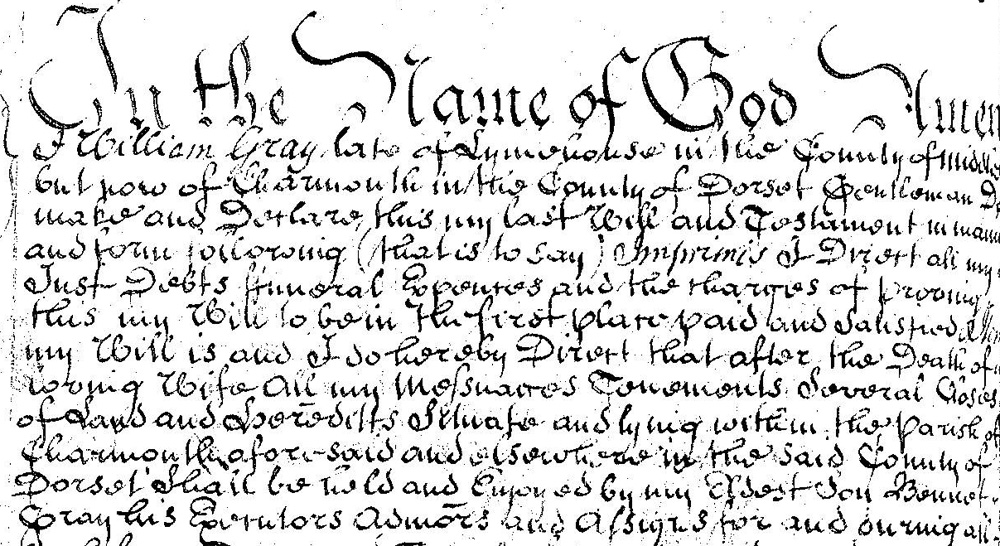 In the Name of God Amen
I William Gray late of Lymehouse in the County of Middle
but now of Charmouth in the County of Dorset Gentleman Do
make and Declare this my last Will and Testament in mann
and form following (that is to say) Imprimis I Direct all my
Just Debts ffuneral Expences and the Charges of proving
this my Will to be in the first place paid and Satisfied
my Will is and I do hereby Direct that after the Death of
loving Wife All my Messuages Tenements Several Closes
of Land and Heredits Situate and lying within the Parish of
Charmouth aforesaid and elsewhere in the said County of
Dorset Shall be held and Enjoyed by my Eldest Son Bennet
Gray his Executors Admors and Assigns for and during all